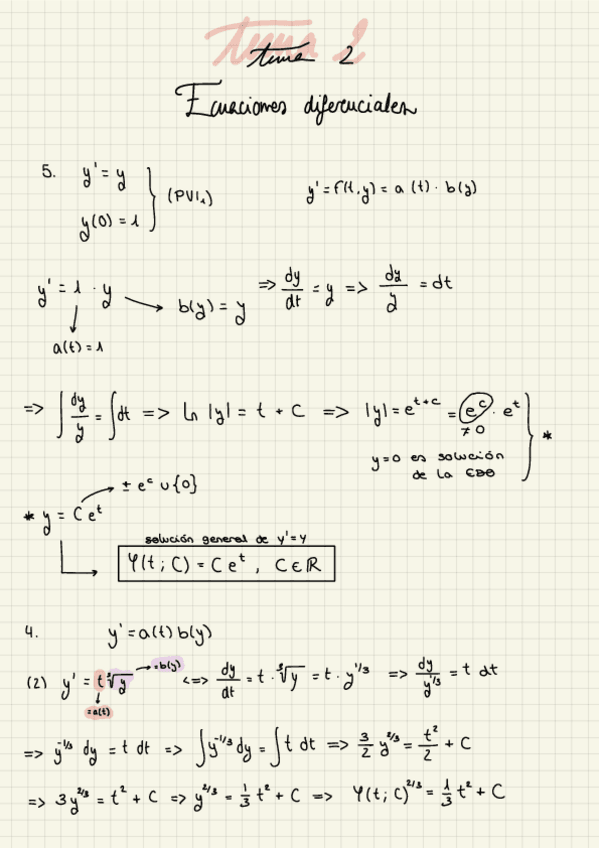 tema 2
tema 2
Ecuaciones diferenciales
5. y' = y
y(0) = 1 } (PVI₁)
y' = f(t,y) = a(t) · b(y)
y' = 1 · y → b(y) = y
a(t) = 1
=> dy/dt = y => dy/y = dt
=> ∫ dy/y = ∫ dt => ln |y| = t + C => |y| = e^{t+c} = e^c · e^t
≠ 0
y=0 es solución
de la EDO } *
± e^c ∪ {0}
* y = C e^t
solución general de y'=y
φ(t; C) = C e^t, C ∈ ℝ
4. y' = a(t) b(y)
(2) y' = t ∛y → =b(y) <=> dy/dt = t · ∛y = t · y^{1/3} => dy/y^{1/3} = t dt
=a(t)
=> y^{-1/3} dy = t dt => ∫ y^{-1/3} dy = ∫ t dt => 3/2 y^{2/3} = t²/2 + C
=> 3y^{2/3} = t² + C => y^{2/3} = 1/3 t² + C => φ(t; C)^{2/3} = 1/3 t² + C